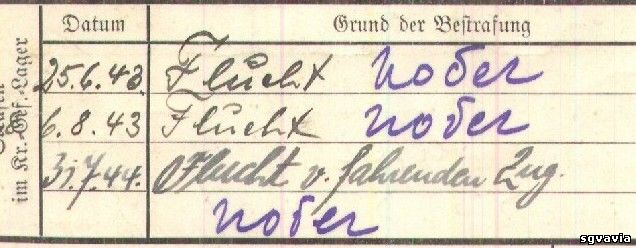 Datum Grund der Bestrafung
im Kr.-Gef.-Lager
25.6.43. Flucht побег
6.8.43 Flucht побег
31.7.44. Flucht v. fahrenden Zug.
побег
sgvavia